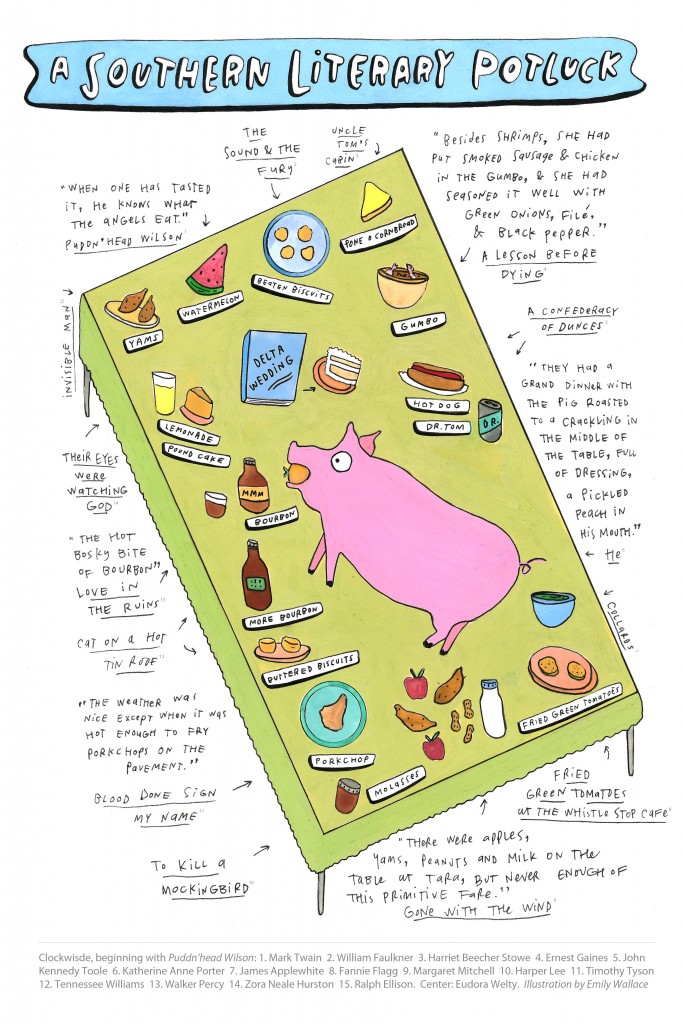 A SOUTHERN LITERARY POTLUCK
THE
SOUND & THE
FURY²
UNCLE
TOM'S
CABIN³
"WHEN ONE HAS TASTED
IT, HE KNOWS WHAT
THE ANGELS EAT."
PUDDN'HEAD WILSON¹
"BESIDES SHRIMPS, SHE HAD
PUT SMOKED SAUSAGE & CHICKEN
IN THE GUMBO, & SHE HAD
SEASONED IT WELL WITH
GREEN ONIONS, FILÉ,
& BLACK PEPPER."
A LESSON BEFORE
DYING⁴
PONE O CORNBREAD
BEATEN BISCUITS
WATERMELON
YAMS
GUMBO
INVISIBLE MAN¹⁵
A CONFEDERACY
OF DUNCES⁵
DELTA
WEDDING
HOT DOG
DR. TOM
DR.
LEMONADE
POUND CAKE
"THEY HAD A
GRAND DINNER WITH
THE PIG ROASTED
TO A CRACKLING IN
THE MIDDLE OF
THE TABLE, FULL
OF DRESSING,
A PICKLED
PEACH IN
HIS MOUTH."
HE⁶
THEIR EYES
WERE
WATCHING
GOD¹⁴
MMM
BOURBON
"THE HOT
BOSKY BITE
OF BOURBON"
LOVE IN
THE RUINS¹³
MORE BOURBON
COLLARDS⁷
CAT ON A HOT
TIN ROOF¹²
BUTTERED BISCUITS
"THE WEATHER WAS
NICE EXCEPT WHEN IT WAS
HOT ENOUGH TO FRY
PORKCHOPS ON THE
PAVEMENT."
BLOOD DONE SIGN
MY NAME¹¹
FRIED GREEN TOMATOES
PORKCHOP
MOLASSES
FRIED
GREEN TOMATOES
AT THE WHISTLE STOP CAFE⁸
TO KILL A
MOCKINGBIRD¹⁰
"THERE WERE APPLES,
YAMS, PEANUTS AND MILK ON THE
TABLE AT TARA, BUT NEVER ENOUGH OF
THIS PRIMITIVE FARE."
GONE WITH THE WIND⁹
Clockwisde, beginning with Puddn'head Wilson: 1. Mark Twain 2. William Faulkner 3. Harriet Beecher Stowe 4. Ernest Gaines 5. John
Kennedy Toole 6. Katherine Anne Porter 7. James Applewhite 8. Fannie Flagg 9. Margaret Mitchell 10. Harper Lee 11. Timothy Tyson
12. Tennessee Williams 13. Walker Percy 14. Zora Neale Hurston 15. Ralph Ellison. Center: Eudora Welty. Illustration by Emily Wallace